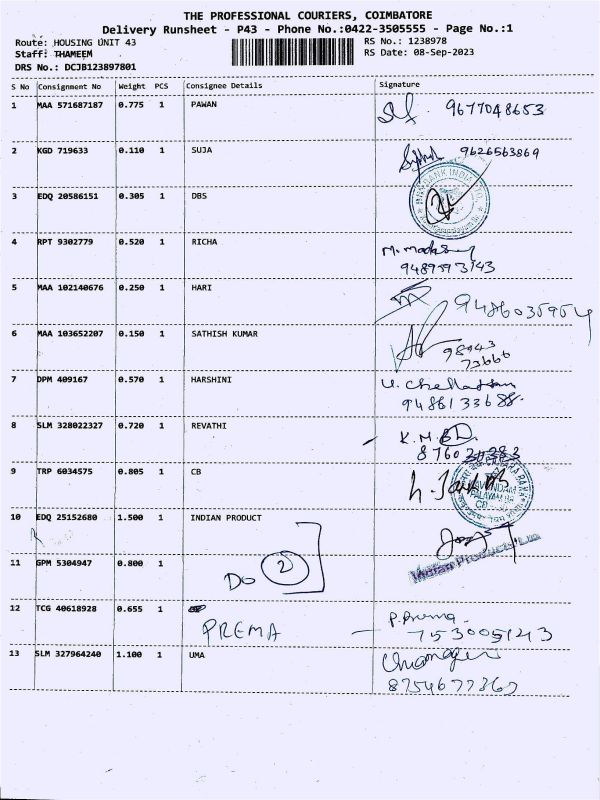 THE PROFESSIONAL COURIERS, COIMBATORE
Delivery Runsheet - P43 - Phone No.:0422-3505555 - Page No.:1
Route: HOUSING UNIT 43 RS No.: 1238978
Staff: THAMEEM RS Date: 08-Sep-2023
DRS No.: DCJB123897801
S No Consignment No Weight PCS Consignee Details Signature
1 MAA 571687187 0.775 1 PAWAN 9677048653
2 KGD 719633 0.110 1 SUJA 9626563869
3 EDQ 20586151 0.305 1 DBS
4 RPT 9302779 0.520 1 RICHA
5 MAA 102140676 0.250 1 HARI
6 MAA 103652207 0.150 1 SATHISH KUMAR 98943
73666
7 DPM 409167 0.570 1 HARSHINI
9486133688
8 SLM 328022327 0.720 1 REVATHI
9 TRP 6034575 0.805 1 CB
10 EDQ 25152680 1.500 1 INDIAN PRODUCT
Indian Products
11 GPM 5304947 0.800 1 DO 2
12 TCG 40618928 0.655 1 PREMA P. Prema
753005143
13 SLM 327964240 1.100 1 UMA